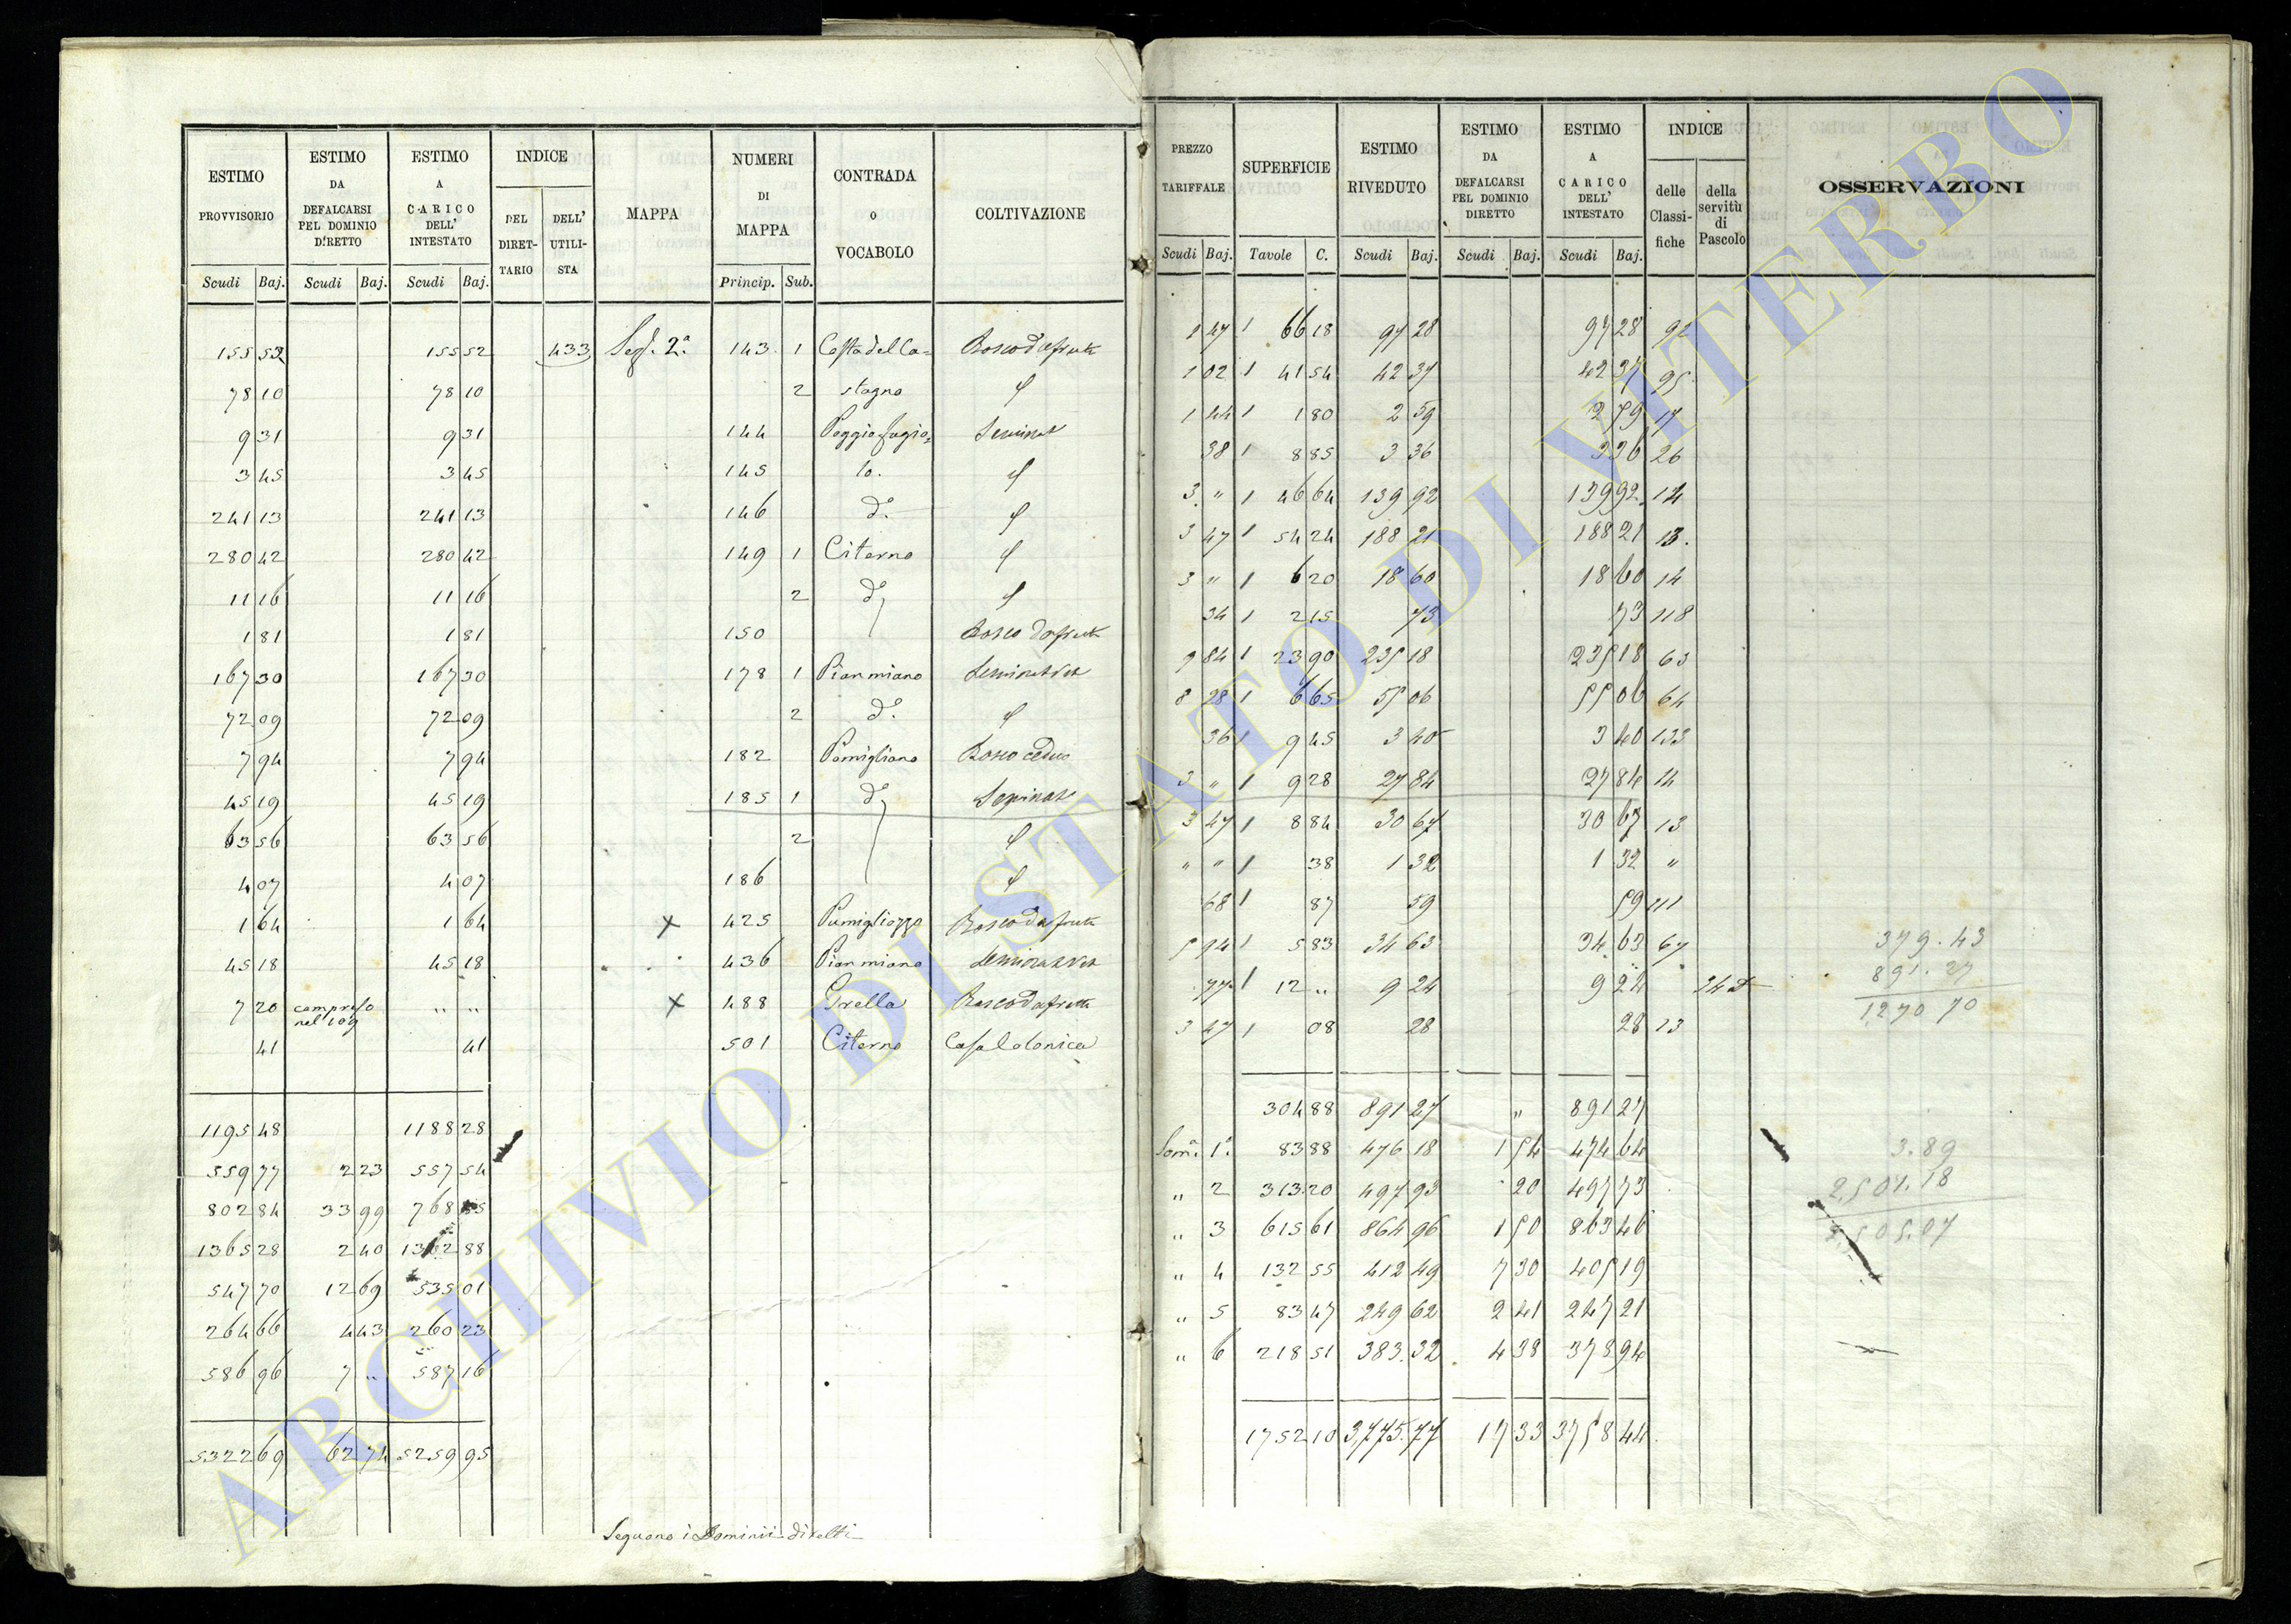 ESTIMO PROVVISORIO | ESTIMO DA DEFALCARSI PEL DOMINIO DIRETTO | ESTIMO A CARICO DELL' INTESTATO | INDICE | MAPPA | NUMERI DI MAPPA | CONTRADA o VOCABOLO | COLTIVAZIONE
PEL DIRETTARIO | DELL' UTILISTA
Scudi Baj. | Scudi Baj. | Scudi Baj. | Princip. Sub.
155 52 | 155 52 | 433 | Sez. 2a. | 143 1 | Costa del Ca= | Bosco da frutti
78 10 | 78 10 | 2 | stagno | φ
9 31 | 9 31 | 144 | Poggio fagio= | Seminat
3 45 | 3 45 | 145 | lo. | φ
241 13 | 241 13 | 146 | do. | φ
280 42 | 280 42 | 149 1 | Citerno | φ
11 16 | 11 16 | 2 | do | φ
1 81 | 1 81 | 150 | Bosco da frutti
167 30 | 167 30 | 178 1 | Pian miano | Seminat vit
72 09 | 72 09 | 2 | do. | φ
7 94 | 7 94 | 182 | Pomigliano | Bosco ceduo
45 19 | 45 19 | 185 1 | do | Seminat
63 56 | 63 56 | 2 | φ
4 07 | 4 07 | 186 | φ
1 64 | 1 64 | x | 425 | Pumigliozzo | Bosco da frutti
45 18 | 45 18 | 436 | Pian miano | Seminat vit
7 20 | compreso nel 109 | " " | x | 488 | Girella | Bosco da frutti
41 | 41 | 501 | Citerno | Casa Colonica
1195 48 | 1188 28
559 77 | 2 23 | 557 54
802 84 | 33 99 | 768 85
1365 28 | 2 40 | 1362 88
547 70 | 12 69 | 535 01
264 66 | 4 43 | 260 23
586 96 | 7 " | 587 16
5322 69 | 62 74 | 5259 95
Seguono i Dominii diretti
PREZZO TARIFFALE | SUPERFICIE | ESTIMO RIVEDUTO | ESTIMO DA DEFALCARSI PEL DOMINIO DIRETTO | ESTIMO A CARICO DELL' INTESTATO | INDICE | OSSERVAZIONI
delle Classifiche | della servitù di Pascolo
Scudi Baj. | Tavole C. | Scudi Baj. | Scudi Baj. | Scudi Baj.
1 47 | 1 66 18 | 97 28 | 97 28 | 92
1 02 | 1 41 54 | 42 37 | 42 37 | 95
1 44 | 1 1 80 | 2 59 | 2 59 | 17
38 | 1 8 85 | 3 36 | 3 36 | 26
3 " | 1 46 64 | 139 92 | 139 92 | 14
3 47 | 1 54 24 | 188 21 | 188 21 | 13.
3 " | 1 6 20 | 18 60 | 18 60 | 14
34 | 1 2 15 | 73 | 73 | 118
9 84 | 1 23 90 | 235 18 | 235 18 | 63
8 28 | 1 6 65 | 55 06 | 55 06 | 64
36 | 1 9 45 | 3 40 | 3 40 | 133
3 " | 1 9 28 | 27 84 | 27 84 | 14
3 47 | 1 8 84 | 30 67 | 30 67 | 13
" " | 1 38 | 1 32 | 1 32 | "
68 | 1 87 | 59 | 59 | 111
5 94 | 1 5 83 | 34 63 | 34 63 | 67 | 379.43
77 | 1 12 " | 9 24 | 9 24 | 891.27
3 47 | 1 08 | 28 | 28 | 13 | 1270 70
304 88 | 891 27 | " | 891 27
Som. 1a. | 83 88 | 476 18 | 1 54 | 474 64 | 3.89
" 2 | 313.20 | 497 93 | 20 | 497 73 | 2,501.18
" 3 | 615 61 | 864 96 | 1 50 | 863 46 | 2,505.07
" 4 | 132 55 | 412 49 | 7 30 | 405 19
" 5 | 83 47 | 249 62 | 2 41 | 247 21
" 6 | 218 51 | 383.32 | 4 38 | 378 94
1752 10 | 3,775.77 | 17 33 | 3758 44
ARCHIVIO DI STATO DI VITERBO